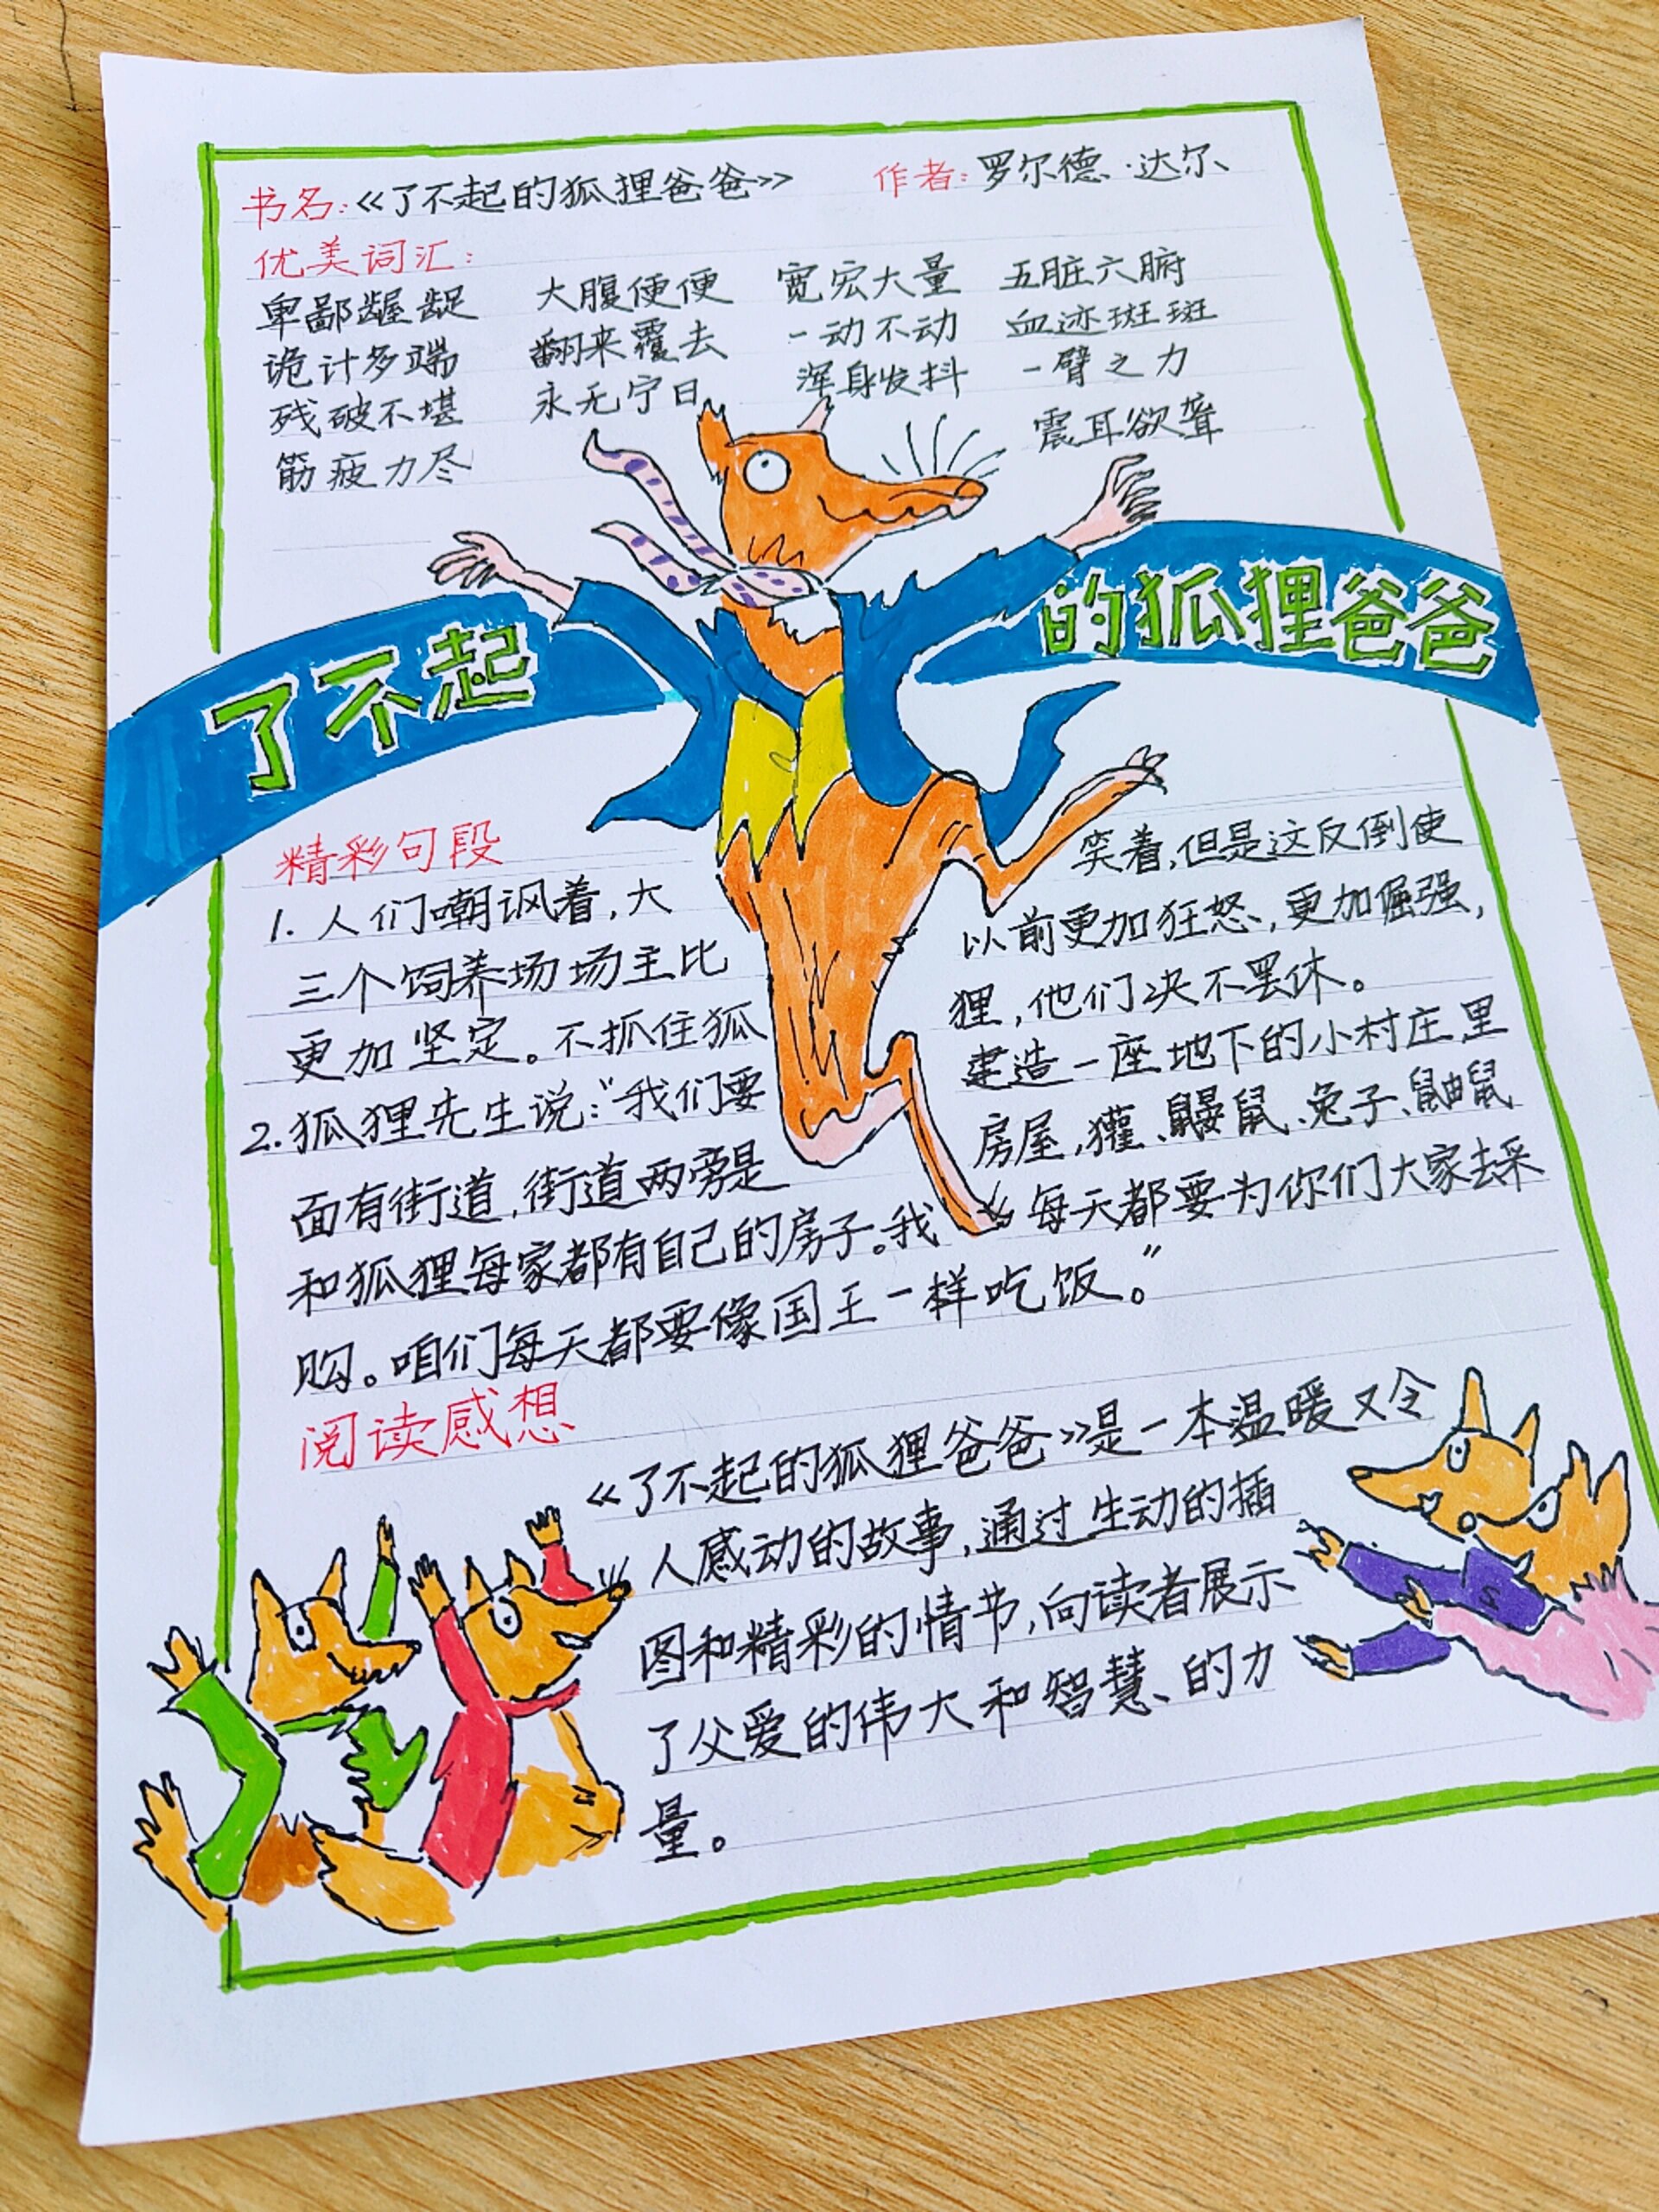 书名:《了不起的狐狸爸爸》 作者:罗尔德·达尔
优美词汇:
卑鄙龌龊 大腹便便 宽宏大量 五脏六腑
诡计多端 翻来覆去 一动不动 血迹斑斑
残破不堪 永无宁日 浑身发抖 一臂之力
筋疲力尽 震耳欲聋
了不起的狐狸爸爸
精彩句段
1. 人们嘲讽着,大笑着,但是这反倒使
三个饲养场场主比以前更加狂怒、更加倔强,
更加坚定。不抓住狐狸,他们决不罢休。
2. 狐狸先生说:"我们要建造一座地下的小村庄,里
面有街道,街道两旁是房屋,獾、鼹鼠、兔子、鼬鼠
和狐狸每家都有自己的房子。我每天都要为你们大家去采
购。咱们每天都要像国王一样吃饭。"
阅读感想
《了不起的狐狸爸爸》是一本温暖又令
人感动的故事,通过生动的插
图和精彩的情节,向读者展示
了父爱的伟大和智慧、的力
量。